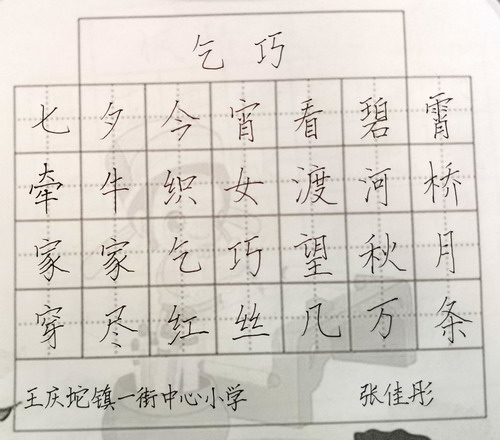 乞巧
七夕今宵看碧霄
牵牛织女渡河桥
家家乞巧望秋月
穿尽红丝几万条
王庆坨镇一街中心小学 张佳彤